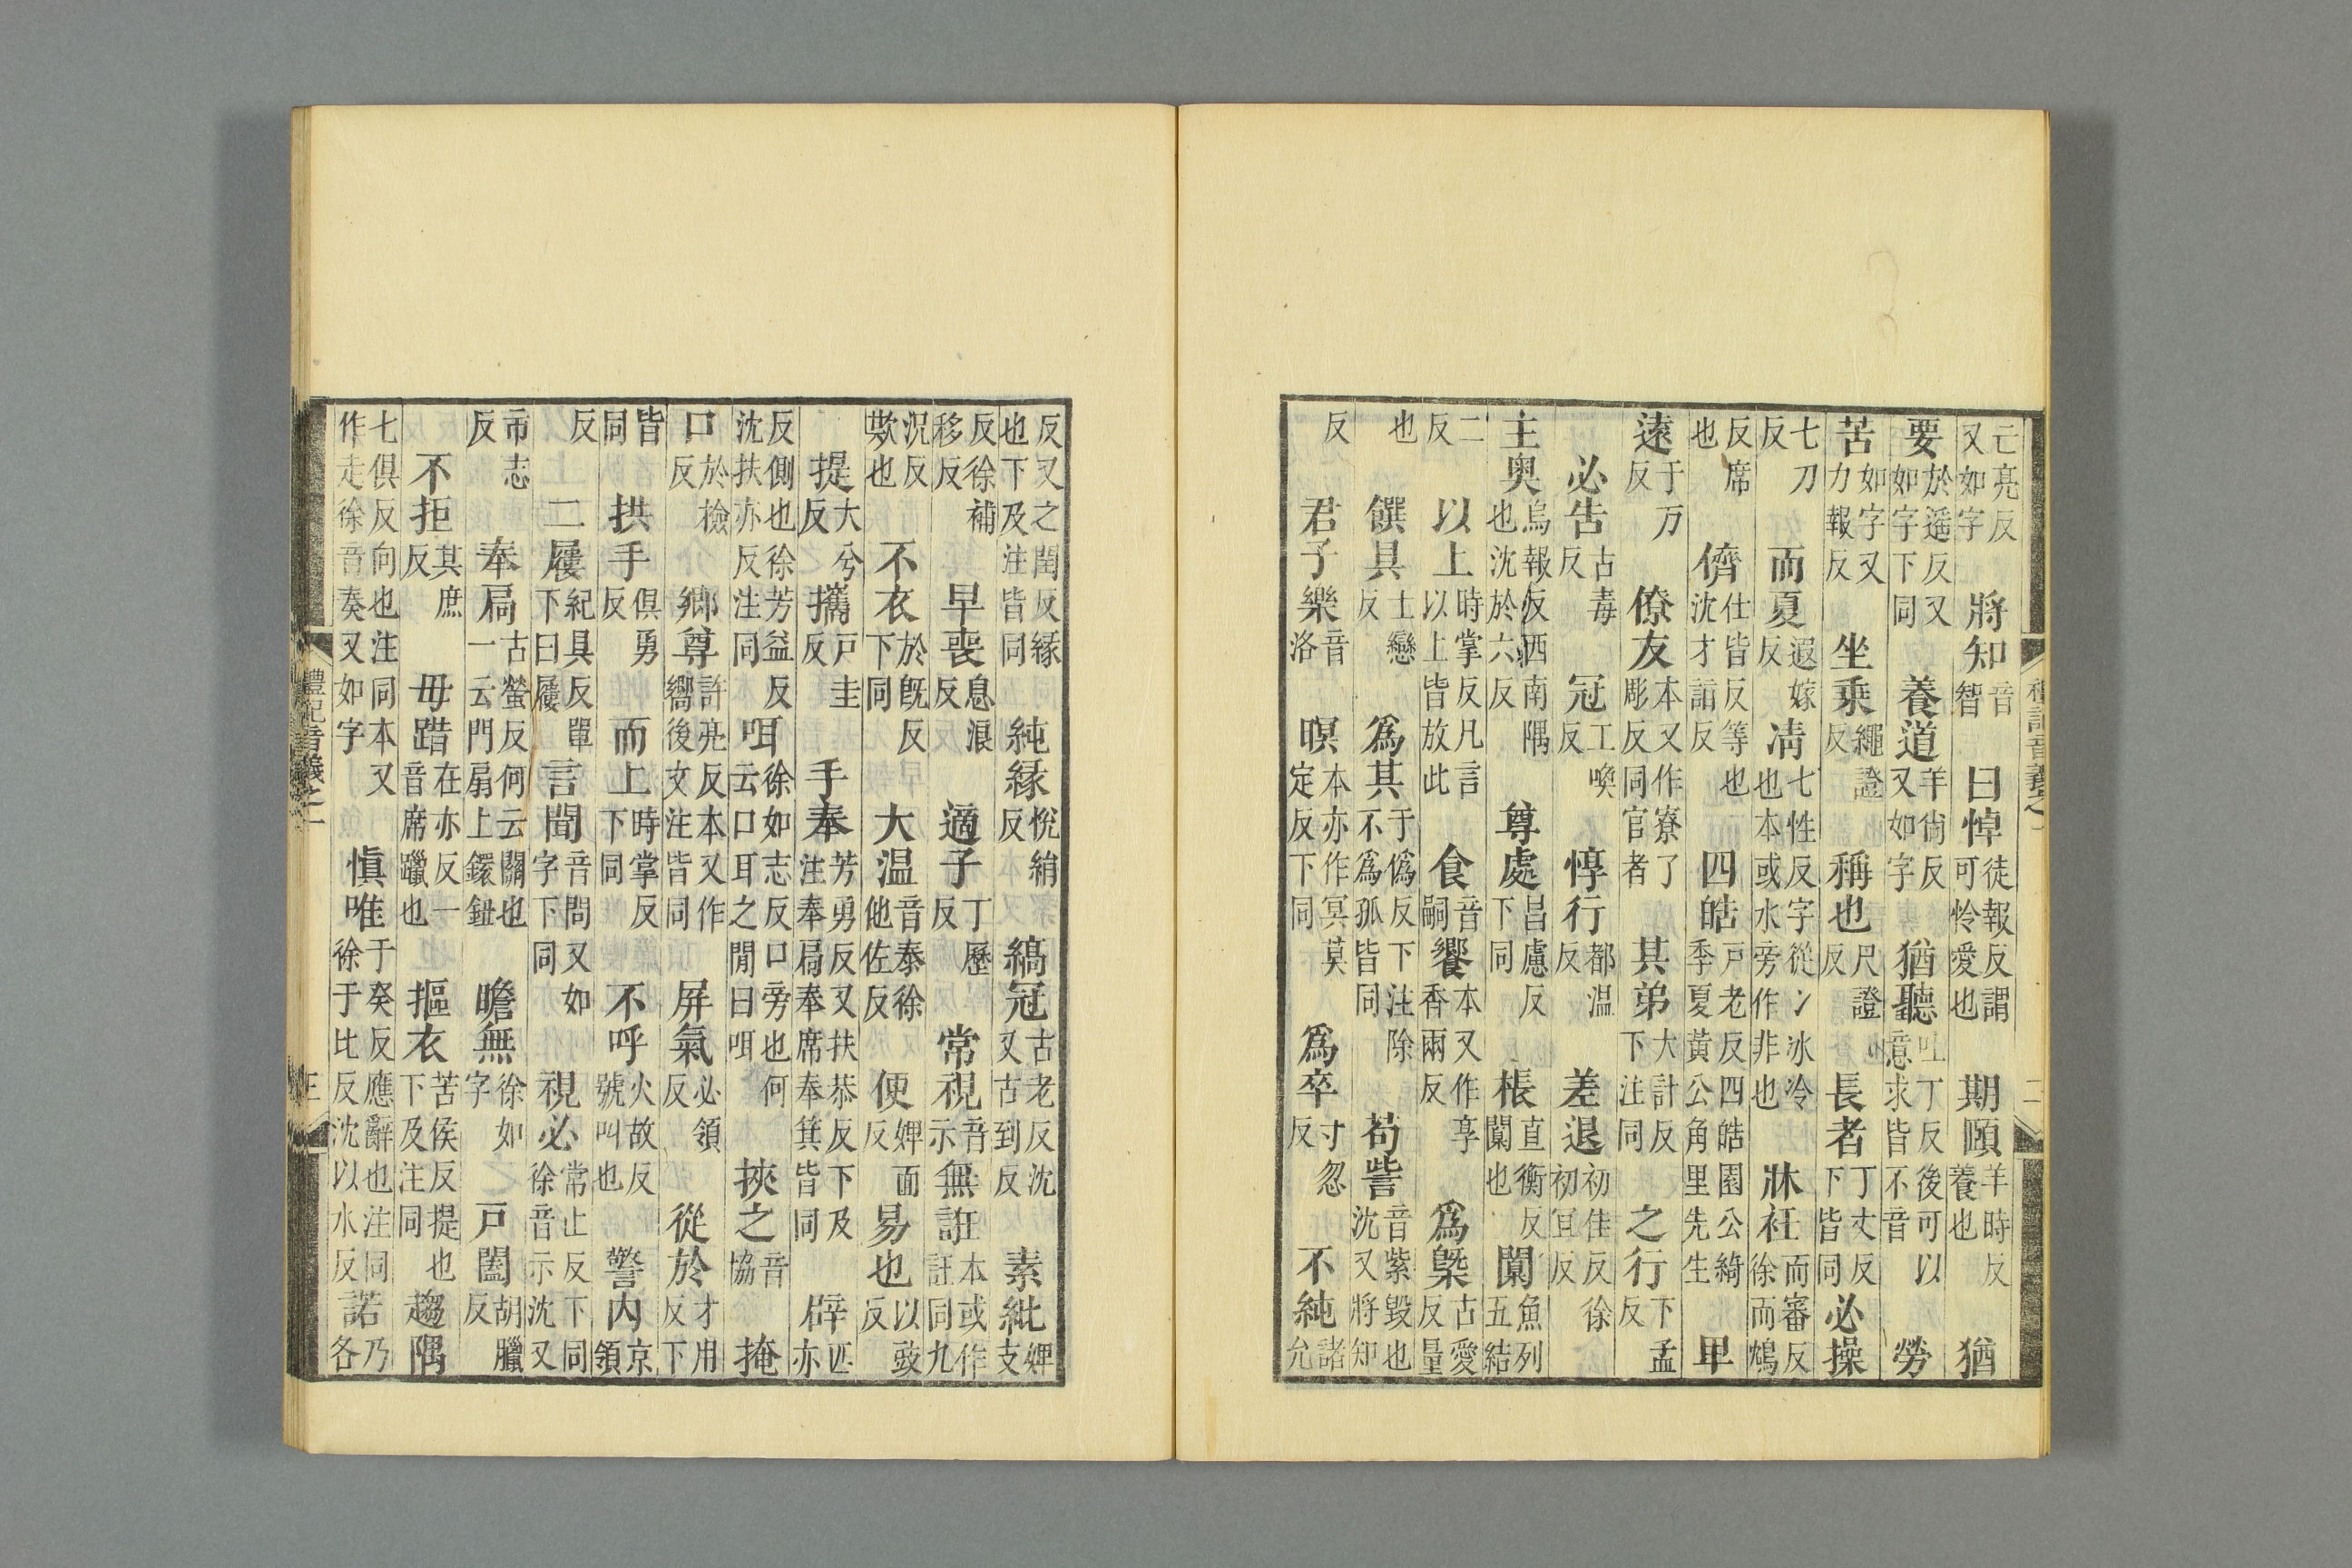 亡亮反又如字將知音智曰悼徒報反謂可怜愛也期頤羊時反養也猶
要於遥反又如字下同養道羊尚反又如字猶聽吐丁反後可以憶求皆不音勞
苦如字又力報反坐乗繩證反稱也尺證反長者丁丈反下皆同必操
七刀反而夏遐嫁反凊七性反字從冫冰冷也本或水旁作非也牀衽而審反徐而鴆
反席也儕仕皆反等也沈才詣反四皓戸老反四皓園公綺季夏黄公角里先生卑
遠于万反僚友本又作寮了彫反同官者其弟大計反下注同之行下孟反
必告古毒反冠工喚反惇行都温反差退初佳反徐初宜反
主奥烏報反西南隅也沈於六反尊處昌慮反下同棖直衡反闑也闑魚列五結
二反以上時掌反凡言以上皆放此食音嗣饗本又作享香兩反爲槩古愛反量
也饌具士戀反爲其于僞反下注除不爲孤皆同苟訾音紫毁也沈又將知
反君子樂音洛暝本亦作冥莫定反下同爲卒寸忽反不純諸允
反又之閏反縁也下及注皆同純縁悅絹反縞冠古老反沈又古到反素紕婢支
反徐補移反早喪息浪反適子丁歷反常視音示無誑本或作註同九
況反欺也不衣於旣反下同大温音泰徐他佐反便婢面反易也以豉反
提大兮反攜戸圭反手奉芳勇反又扶恭反下及注奉扃奉席奉箕皆同辟匹亦
反側也徐芳益反沈扶亦反注同咡徐如志反口旁也何云口耳之閒曰咡挾之音協掩
口於檢反鄉尊許亮反本又作嚮後文注皆同屏氣必領反從於才用反下
皆同拱手俱勇反而上時掌反下同不呼火故反號叫也警内京領
反二屨紀具反單下曰屨言聞音問又如字下同視必常止反下同徐音示沈又
市志反奉扃古螢反何云關也一云門扇上鐶鈕瞻無徐如字戸闔胡臘反
不拒其庶反毋踖在亦反一音席躐也摳衣苦侯反提也下及注同趨隅
七俱反向也注同本又作走徐音奏又如字愼唯于癸反應辭也注同徐于比反沈以水反諾乃各
禮記音義之一
三